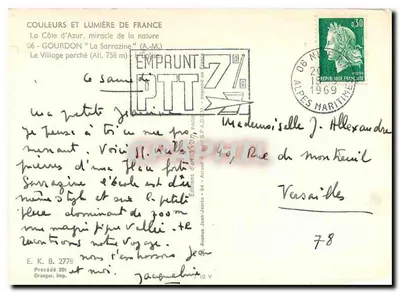 COULEURS ET LUMIÈRE DE FRANCE
La Côte d'Azur, miracle de la nature
06 - GOURDON "La Sarrazine" (A.-M.)
Le Village perché (Alt. 758 m)
EMPRUNT
PTT 7%
0,30
REPUBLIQUE FRANÇAISE
06 N
1969
ALPES MARITIMES
Ce samedi
ma petite
je pense à toi en me pro
menant. Voici vieilles
pierres d'une place forte
Sarrazine l'école est du
même style et sur la petite
place dominant de 700m
une magnifique vallée. te
raconterons notre voyage.
nous t'embrassons Jean
et moi.
Jacqueline
Mademoiselle J. Allexandre
40, Rue de Montreuil
Versailles
78
E. K. B. 2778
Procédé 301
Draeger, Imp.